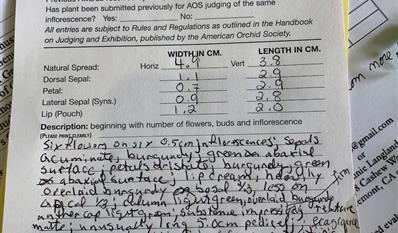 Has plant been submitted previously for AOS judging of the same
inflorescence? Yes: No:
All entries are subject to Rules and Regulations as outlined in the Handbook
on Judging and Exhibition, published by the American Orchid Society.
WIDTH IN CM. LENGTH IN CM.
Natural Spread: Horiz 4.9 Vert 3.8
Dorsal Sepal: 1.1 2.9
Petal: 0.7 2.9
Lateral Sepal (Syns.) 0.9 2.8
Lip (Pouch) 1.2 2.0
Description: beginning with number of flowers, buds and inflorescence
(PLEASE PRINT CLEARLY)
Six flowers on six 0.5cm inflorescences; sepals
acuminate, burgundy, green on abaxial
surface; petals aristate, burgundy, green
on abaxial surface; lip cream, heavily
overlaid burgundy on basal 1/3, less on
apical 1/3; column light green, overlaid burgundy
anther cap light green; substance firm
matte; unusually long 5.0cm pedicel; fragrance
on more
@gmail.com